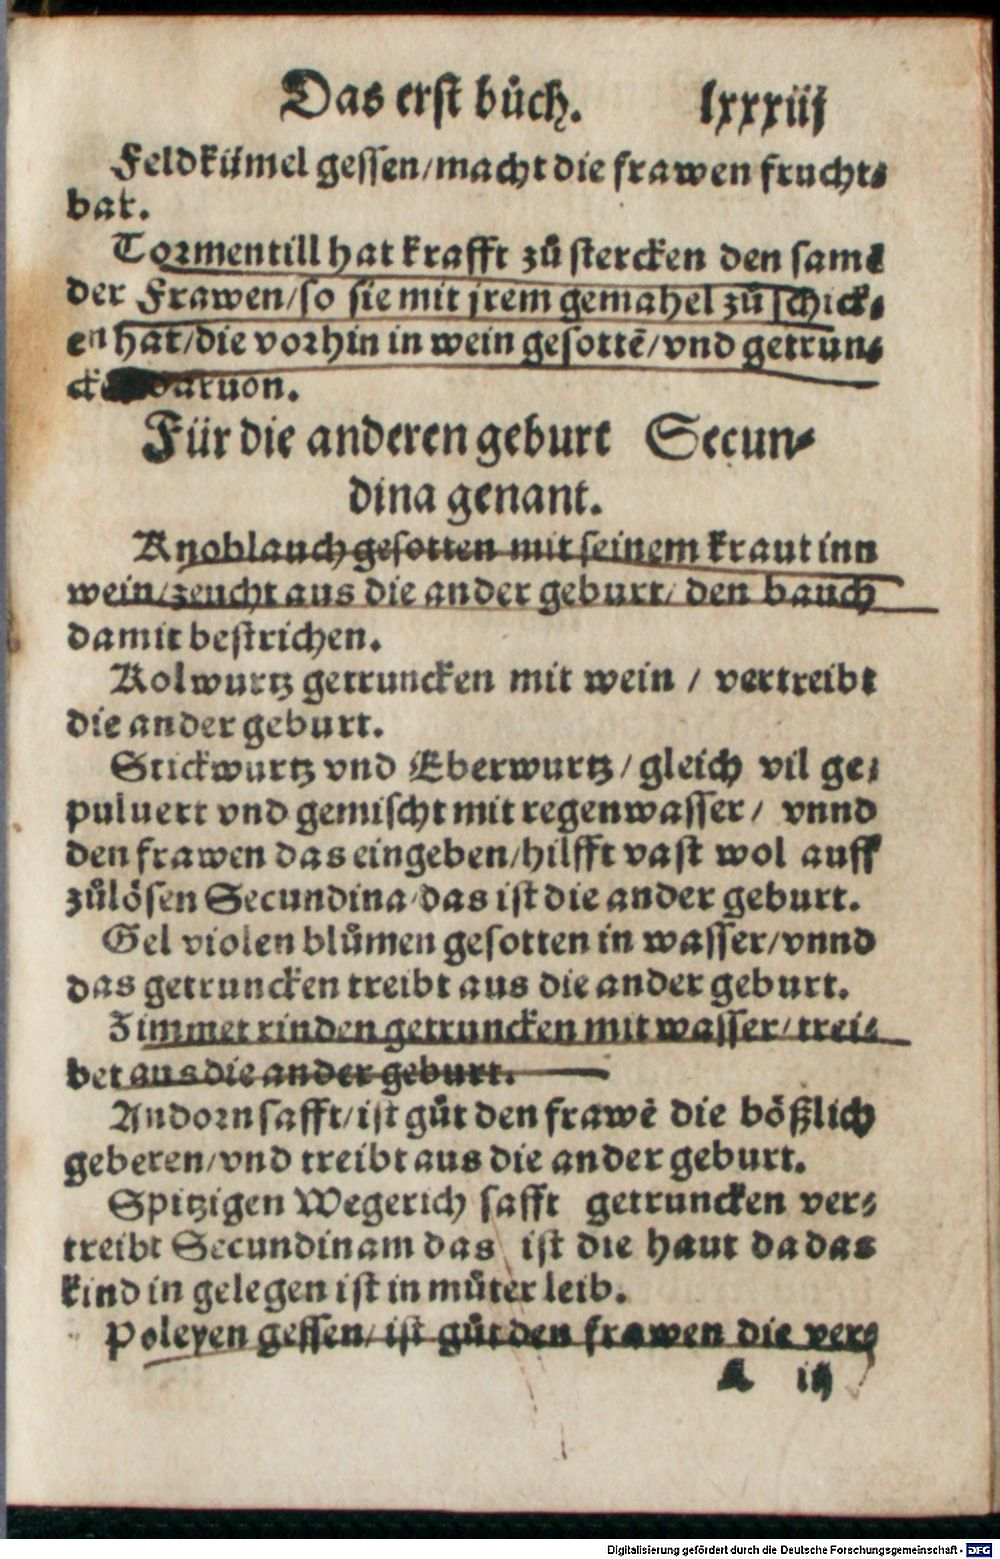 Das erst bůch. lxxxiij
Feldkümel gessen/macht die frawen frucht⸗
bar.
Tormentill hat krafft zů stercken den samē
der Frawen/so sie mit jrem gemahel zů schick⸗
en hat/die vorhin in wein gesottē/vnd getrun⸗
daruon.
Für die anderen geburt Secun⸗
dina genant.
Knoblauch gesotten mit seinem kraut inn
wein/zeucht aus die ander geburt/den bauch
damit bestrichen.
Kolwurtz getruncken mit wein / vertreibt
die ander geburt.
Stickwurtz vnd Eberwurtz/gleich vil ge⸗
puluert vnd gemischt mit regenwasser/ vnnd
den frawen das eingeben/hilfft vast wol auff
zůlösen Secundina/das ist die ander geburt.
Gel violen blůmen gesotten in wasser/vnnd
das getruncken treibt aus die ander geburt.
Zimmet rinden getruncken mit wasser/trei⸗
bet aus die ander geburt.
Andorn safft/ist gůt den frawē die bößlich
geberen/vnd treibt aus die ander geburt.
Spitzigen Wegerich safft getruncken ver⸗
treibt Secundinam das ist die haut da das
kind in gelegen ist in můter leib.
Poleyen gessen/ist gůt den frawen die ver⸗
iij
Digitalisierung gefördert durch die Deutsche Forschungsgemeinschaft - DFG